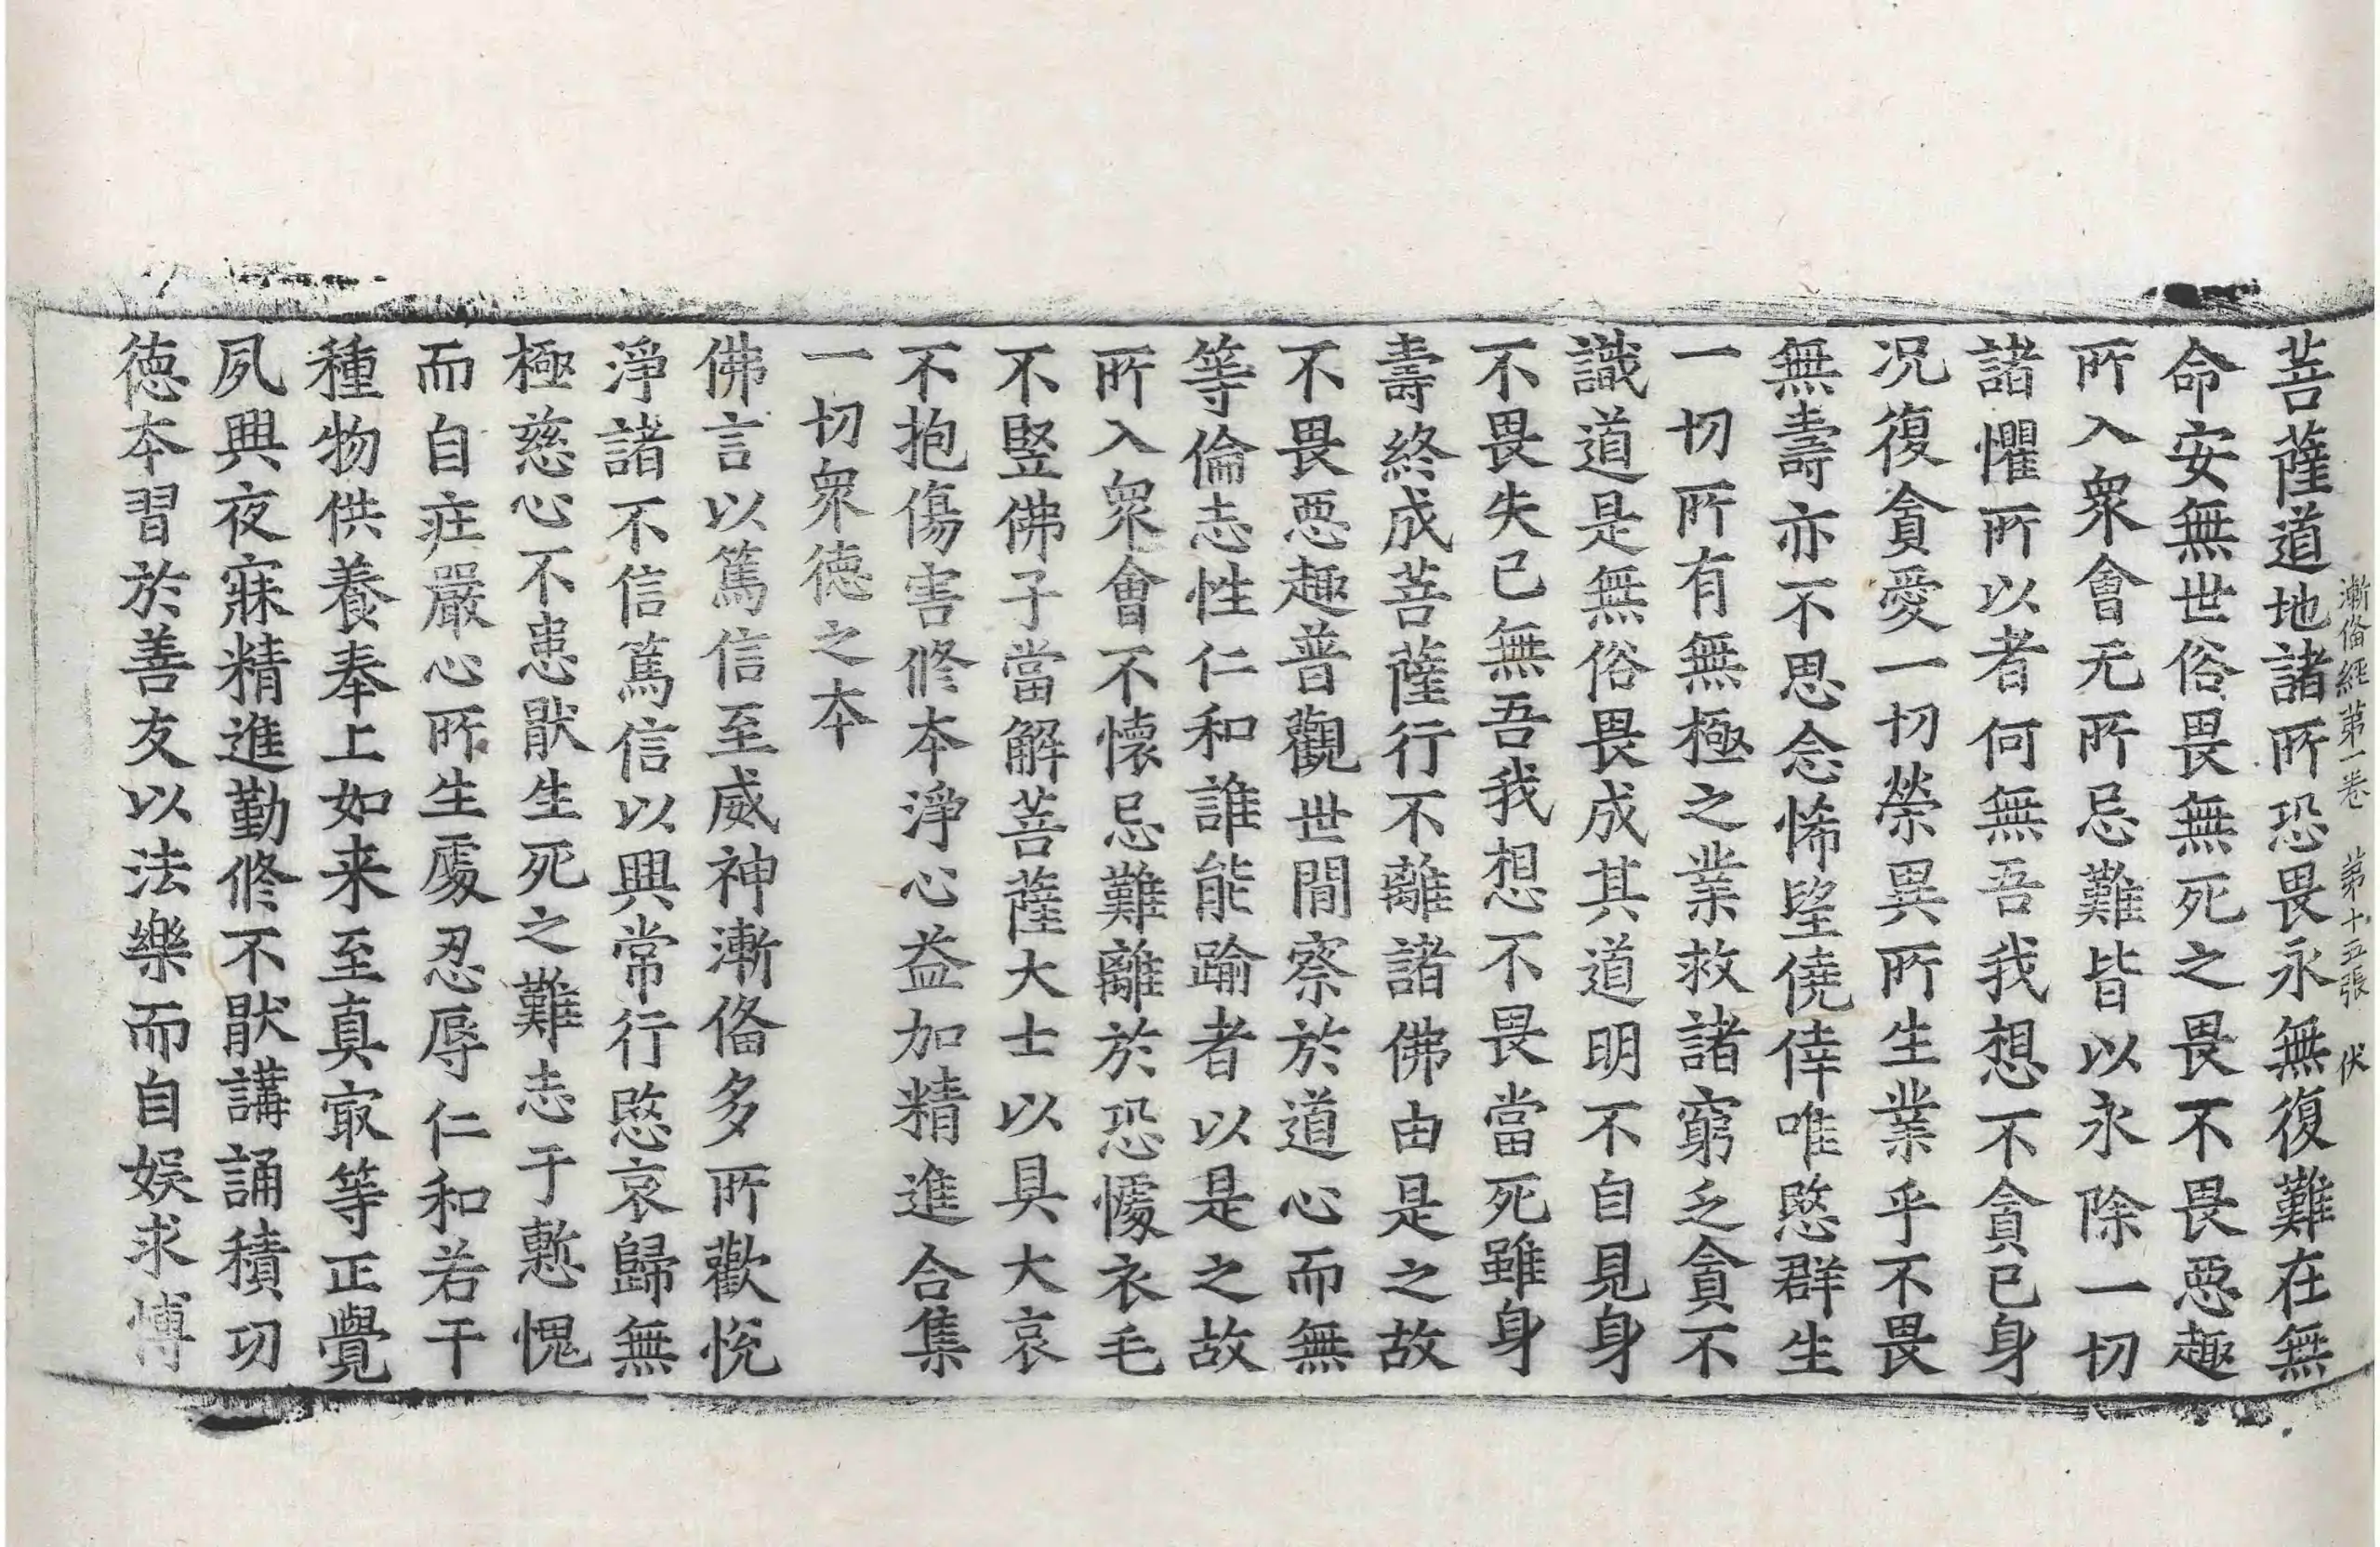 漸俻經第一卷 第十五張 伏
菩薩道地諸所恐畏永無復難在無
命安無世俗畏無死之畏不畏惡趣
所入衆會无所忌難皆以永除一切
諸懼所以者何無吾我想不貪已身
况復貪愛一切榮異所生業乎不畏
無壽亦不思念悕望僥倖唯愍群生
一切所有無極之業救諸窮乏貪不
識道是無俗畏成其道明不自見身
不畏失已無吾我想不畏當死雖身
壽終成菩薩行不離諸佛由是之故
不畏惡趣普觀世間察於道心而無
等倫志性仁和誰能踰者以是之故
所入衆會不懷忌難離於恐懅衣毛
不竪佛子當解菩薩大士以具大哀
不抱傷害修本淨心益加精進合集
一切衆德之本
佛言以篤信至威神漸俻多所歡悅
淨諸不信篤信以興常行愍哀歸無
極慈心不患猒生死之難志于慙愧
而自庄嚴心所生處忍辱仁和若干
種物供養奉上如来至真㝡等正覺
夙興夜寐精進勤修不猒講誦積功
德本習於善友以法樂而自娛求博